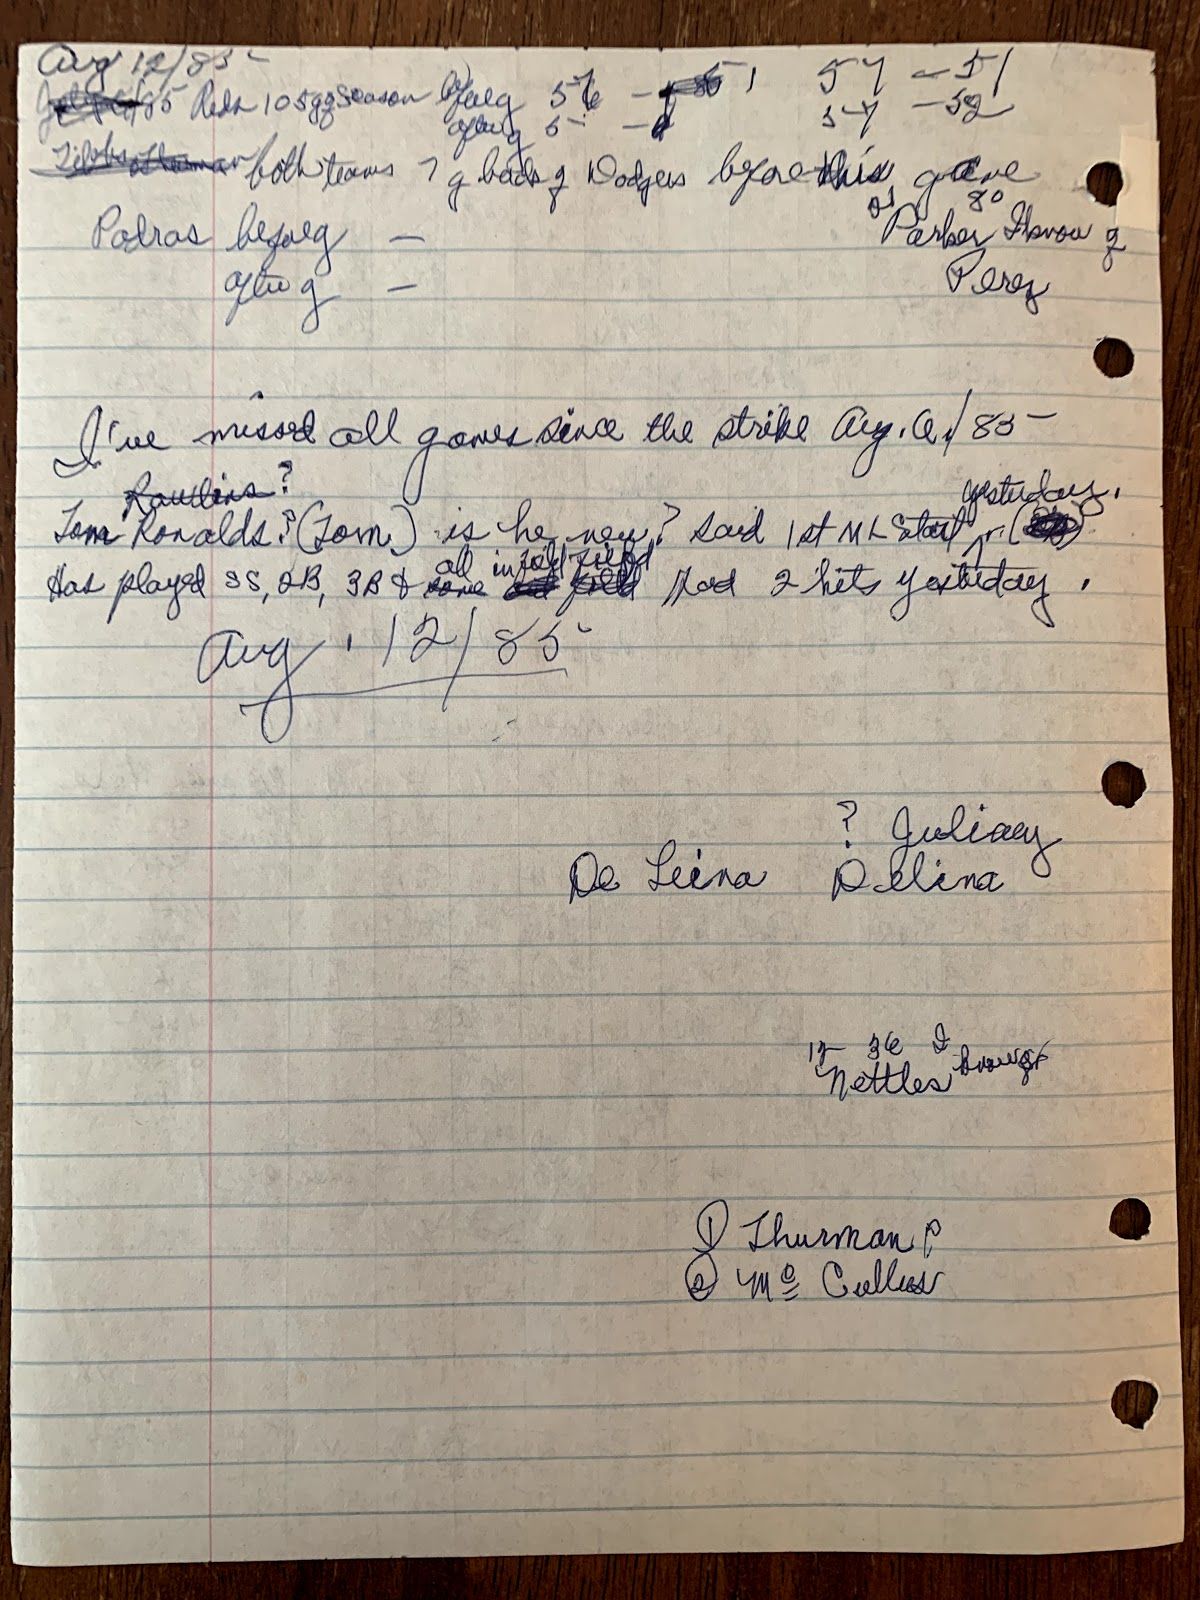 Aug 12/85
/85 Reds 105 gg season before g 56 - 51 57 - 51
after g 5 - 57 - 52
both teams 7 g back of Dodgers before this game
Padras before g — Parker Threw g
after g — Perez
I've missed all games since the strike Aug. 6./85
Rawlins? yesterday.
Tom Ronalds? (Tom) is he new? said 1st ML Start
all infield field
Has played SS, 2B, 3B & Had 2 hits yesterday.
Aug. 12/85
? Juliaey
De Leina Delina
12 36 I
Nettles
① Thurman P
② Mc Cullus